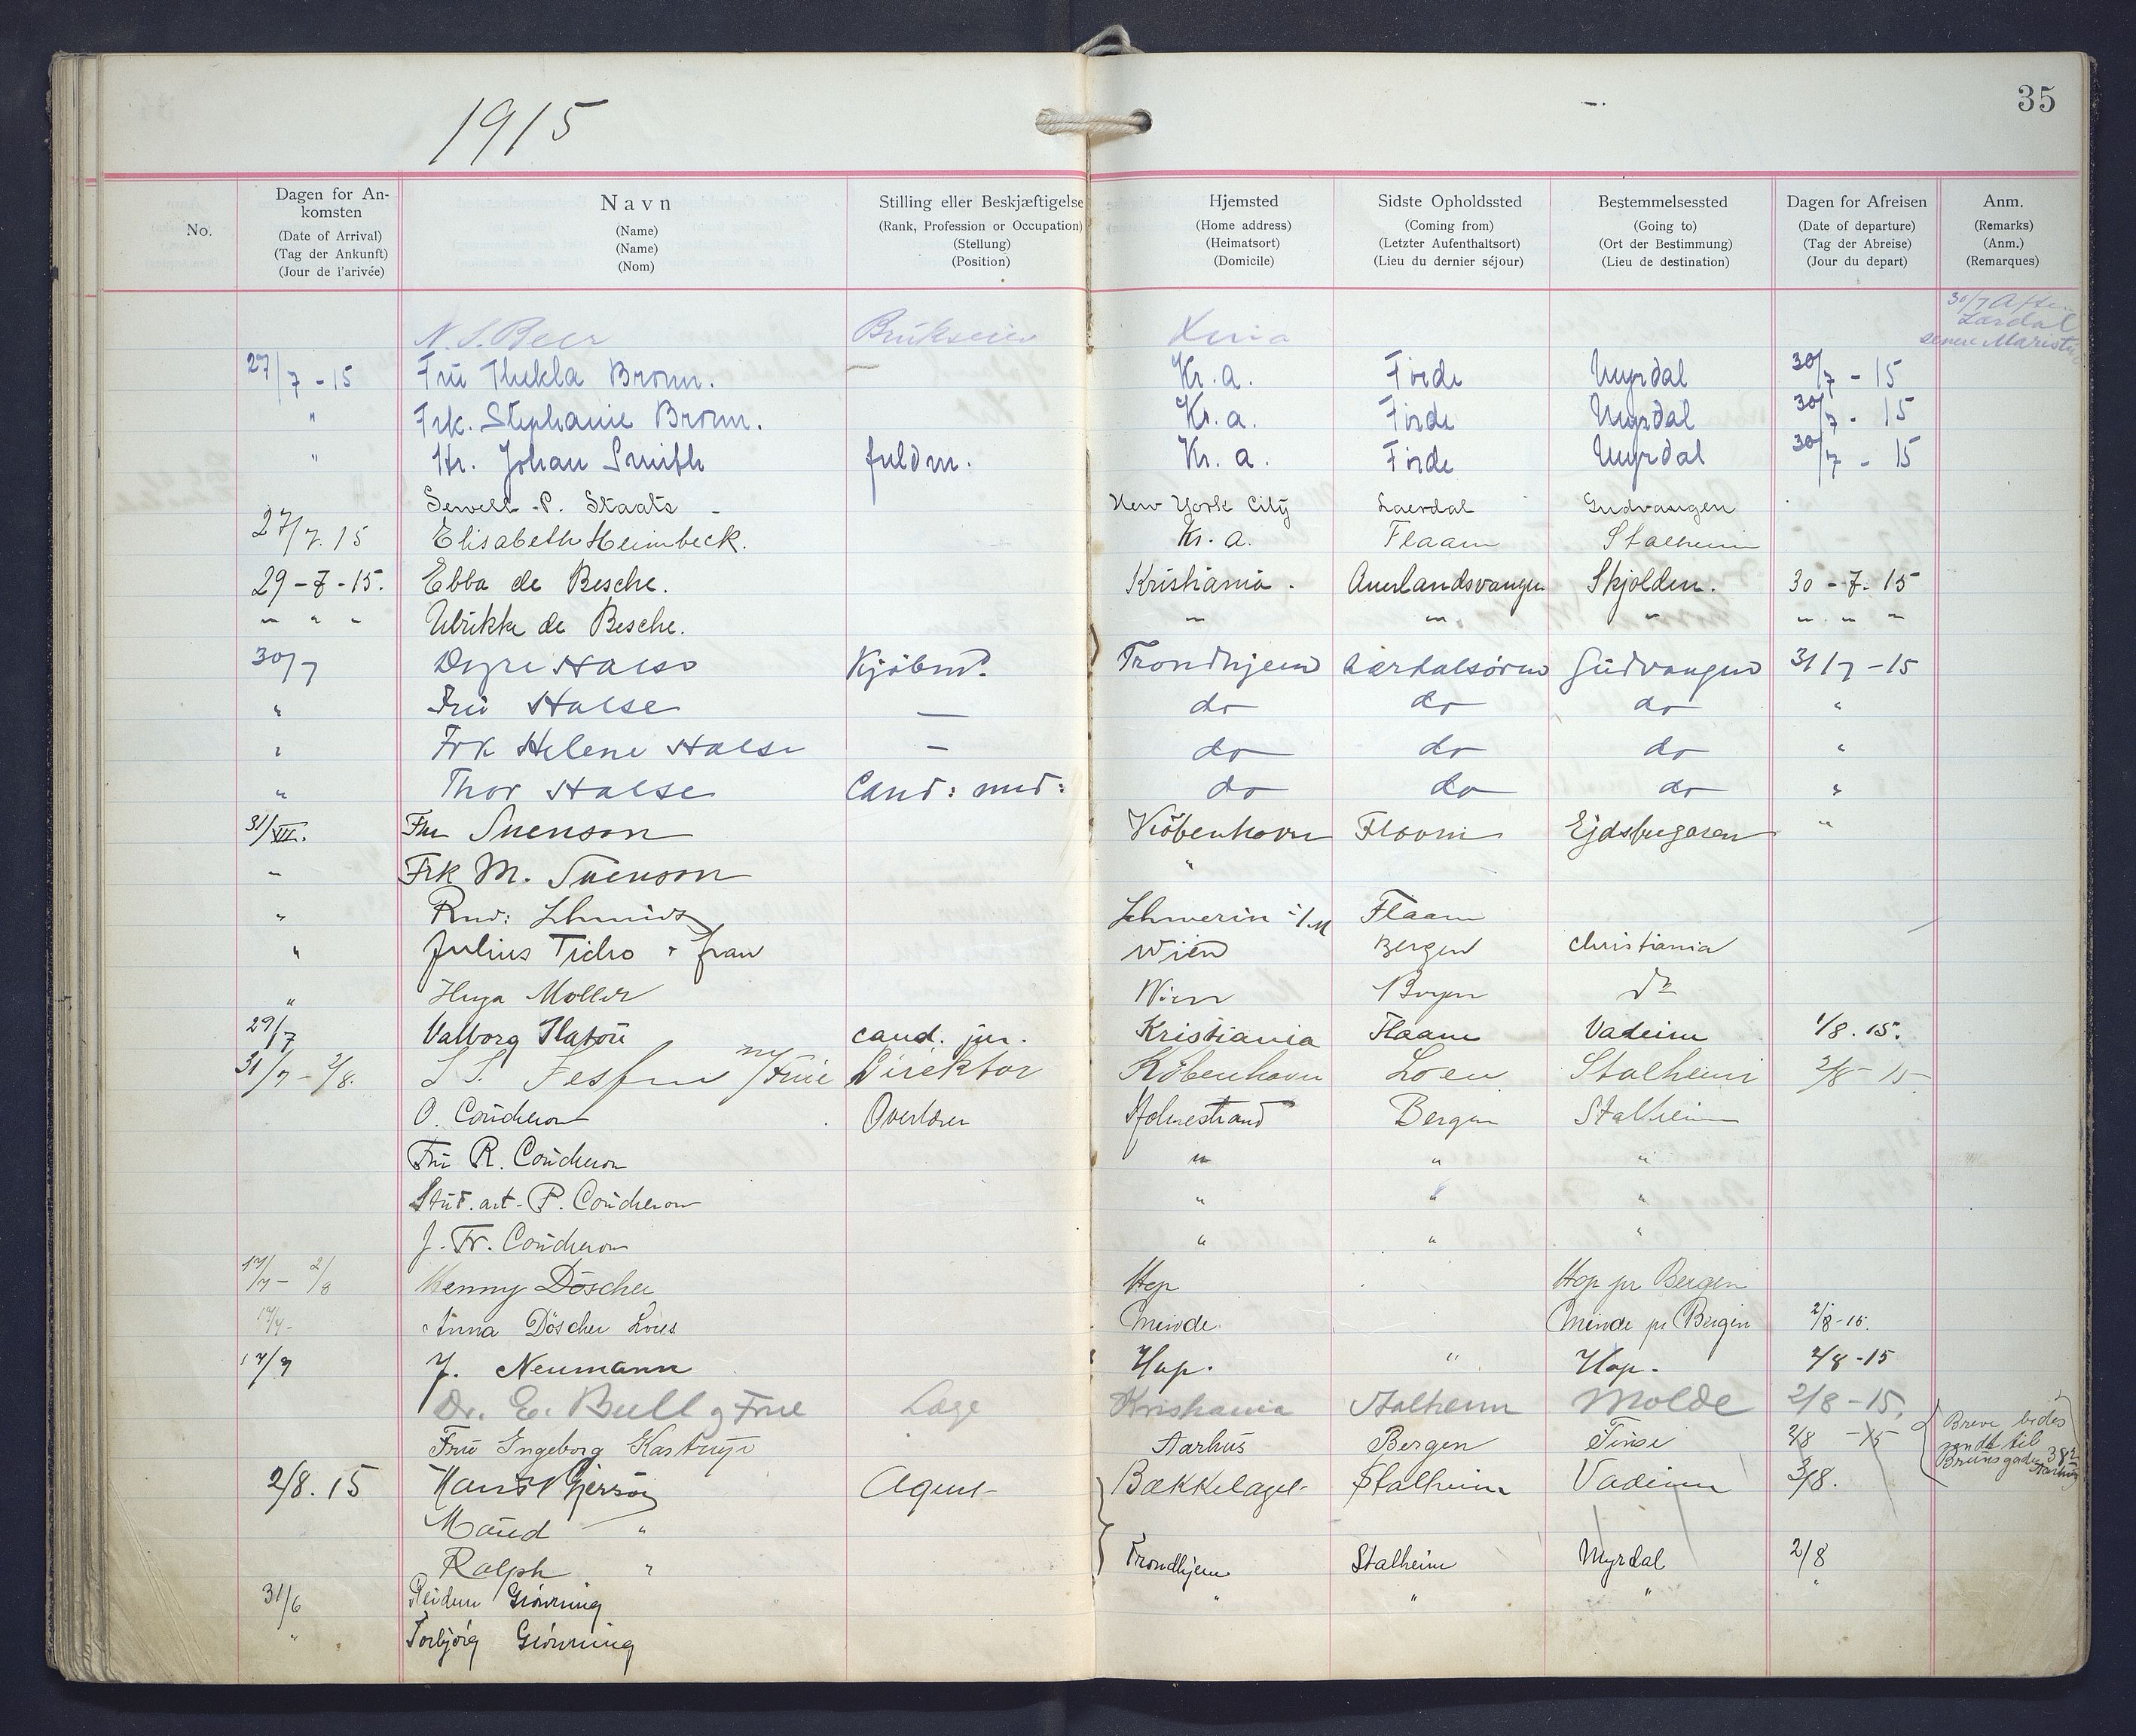 1915
35
No.
Dagen for An-
komsten
(Date of Arrival)
(Tag der Ankunft)
(Jour de l'arivée)
Navn
(Name)
(Name)
(Nom)
Stilling eller Beskjæftigelse
(Rank, Profession or Occupation)
(Stellung)
(Position)
Hjemsted
(Home address)
(Heimatsort)
(Domicile)
Sidste Opholdssted
(Coming from)
(Letzter Aufenthaltsort)
(Lieu du dernier séjour)
Bestemmelsessted
(Going to)
(Ort der Bestimmung)
(Lieu de destination)
Dagen for Afreisen
(Date of departure)
(Tag der Abreise)
(Jour du depart)
Anm.
(Remarks)
(Anm.)
(Remarques)
30/7 Aften
Lærdal
senere Maristu
N. S. Beer Brukseier Xnia
27/7 - 15 Fru Thekla Bronn. — Kr. a. Förde Myrdal 30/7 - 15
" Frk. Stephanie Bronn. Kr. a. Förde Myrdal 30/7 - 15
" Hr. Johan Smith fuldm. Kr. a. Förde Myrdal 30/7 - 15
Sewell P. Staats - New York City Laerdal Gudvangen
27/7. 15 Elisabeth Heimbeck. Kr. a. Flaam Stalheim
29 - 7 - 15. Ebba de Besche. Kristiania. Aurlandsvangen Skjolden. 30 - 7. 15
" " " Ulrikke de Besche. " " " " " "
30/7 Dyre Halse Kjöbm. Trondhjem Lærdalsören Gudvangen 31/7 - 15
" Fru Halse — do do do "
" Frk Helene Halse — do do do "
" Thor Halse Cand: med: do do do "
31/VII. Fru Suenson Köbenhavn Flaam Ejdsbugaren "
" Frk M. Suenson "
" Schmidt Schwerin i/M Flaam
" Julius Ticho & frau Wien Bergen Christiania
" Hugo Moller Wien Bergen do
29/7 Valborg Platou cand. jur. Kristiania Flaam Vadeim 1/8. 15.
31/7 - 2/8. m/Frue Direktör Köbenhavn Loen Stalheim 2/8 - 15
O. Coucheron Overlærer Holmestrand Bergen Stalheim
Fru R. Coucheron " " "
Stud. art. P. Coucheron " " "
J. Fr. Coucheron " " "
17/7 - 2/8 Henny Döscher Hop Hop pr Bergen
17/7 - Anna Döscher Minde. Minde pr Bergen 2/8 - 15.
17/7 J. Neumann Hop. " Hop. 2/8 - 15
Dr. E. Bull og Frue Læge Kristiania Stalheim Molde 2/8 - 15,
Fru Ingeborg Kastrup Aarhus Bergen Finse 2/8 - 15 Breve bedes
sendt til
Brunsgade 38
Aarhus
2/8. 15 Agent Bækkelaget Stalheim Vadeim 3/8.
Maud "
Ralph " Trondhjem Stalheim Myrdal 2/8
31/6 Reidun Giövning " " " "
" Torbjörg Giövning